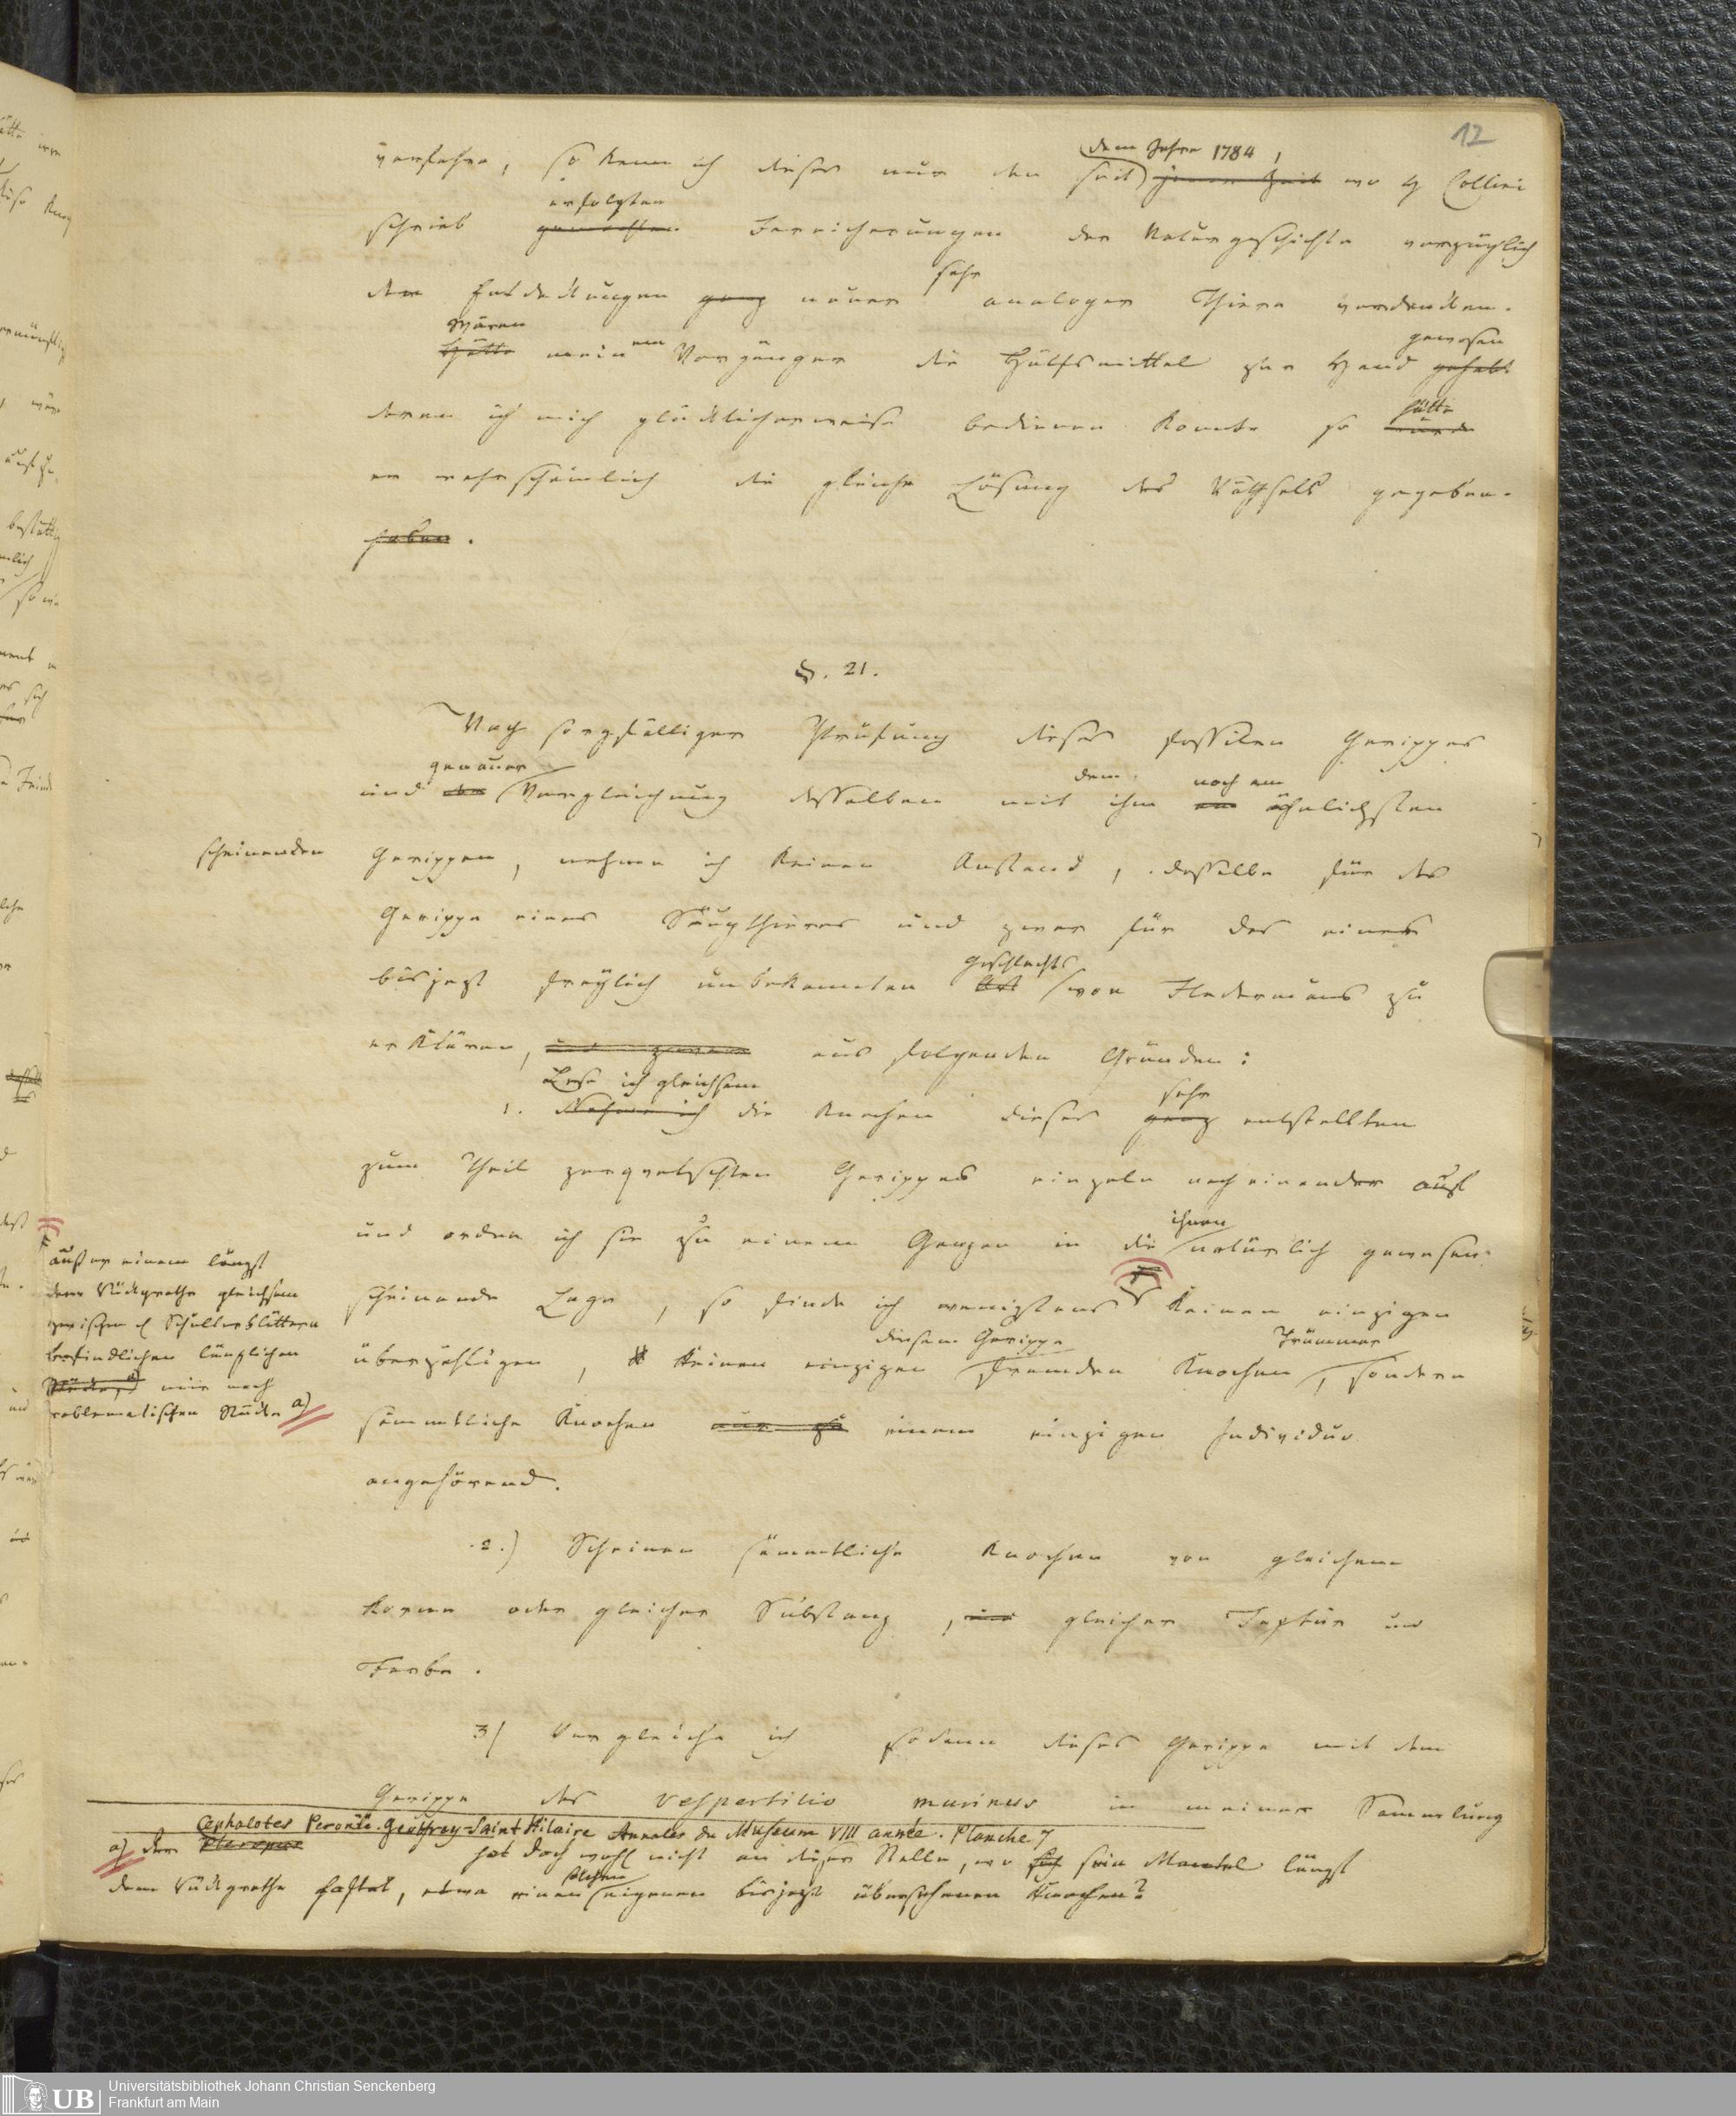 12
dem Jahre 1784,
verfahre, so kann ich dieses nur den seit jener Zeit wo H Collini
erfolgten
schrieb gemachten Bereicherungen der Naturgeschichte vorzüglich
sehr
den Entdekungen ganz neuer analoger Thiere verdanken.
wären gewesen
Hätte meinem Vorgänger die Hülfsmittel zur Hand gehabt
hätte
deren ich mich glüklicherweise bedienen konnte so würde
er wahrscheinlich die gleiche Lösung des Räthsels gegeben.
haben.
§. 21.
Nach sorgfältiger Prüfung dieses fossilen Gerippes
genauer dem noch am
und der Vergleichung desselben mit ihm am ähnlichsten
scheinenden Gerippen, nehme ich keinen Anstand, dasselbe für das
Gerippe eines Säugthieres und zwar für das eines
Geschlechts
bisjezt freylich unbekannten Art von Fledermaus zu
erklären, und zwar aus folgenden Gründen:
Lese ich gleichsam sehr
1. Nehme ich die Knochen dieses ganz entstellten
zum Theil zerquetschten Gerippes einzeln nach einander auf
ihnen
und ordne ich sie zu einem Ganzen in die natürlich gewesen
scheinende Lage, so finde ich wenigstens keinen einzigen
diesem Gerippe Trümmer
überzähligen, keinen einzigen fremden Knochen, sondern
sämmtliche Knochen nur zu einem einzigen Individuo
angehörend.
außer einem längst
dem Rükgrathe gleichsam
zwischen d Schulterblättern
befindlichen länglichen
mir noch
problematischen Stüke a)
2.) Scheinen sämmtliche Knochen von gleichem
Korne oder gleicher Substanz, und gleicher Textur und
Farbe.
3) Vergleiche ich sodann dieses Gerippe mit dem
Gerippe des vespertilio murinus in meiner Sammlung
Cephalotes Peronii. Geoffroy-Saint Hilaire Annales du Museum VIII année. Planche 7
a) der Pteropus hat doch wohl nicht an dieser Stelle, wo sich sein Mantel längst
dem Rükgrathe haftet, etwa einen eigenen bisjezt übersehenen Knochen?
UB Universitätsbibliothek Johann Christian Senckenberg
Frankfurt am Main